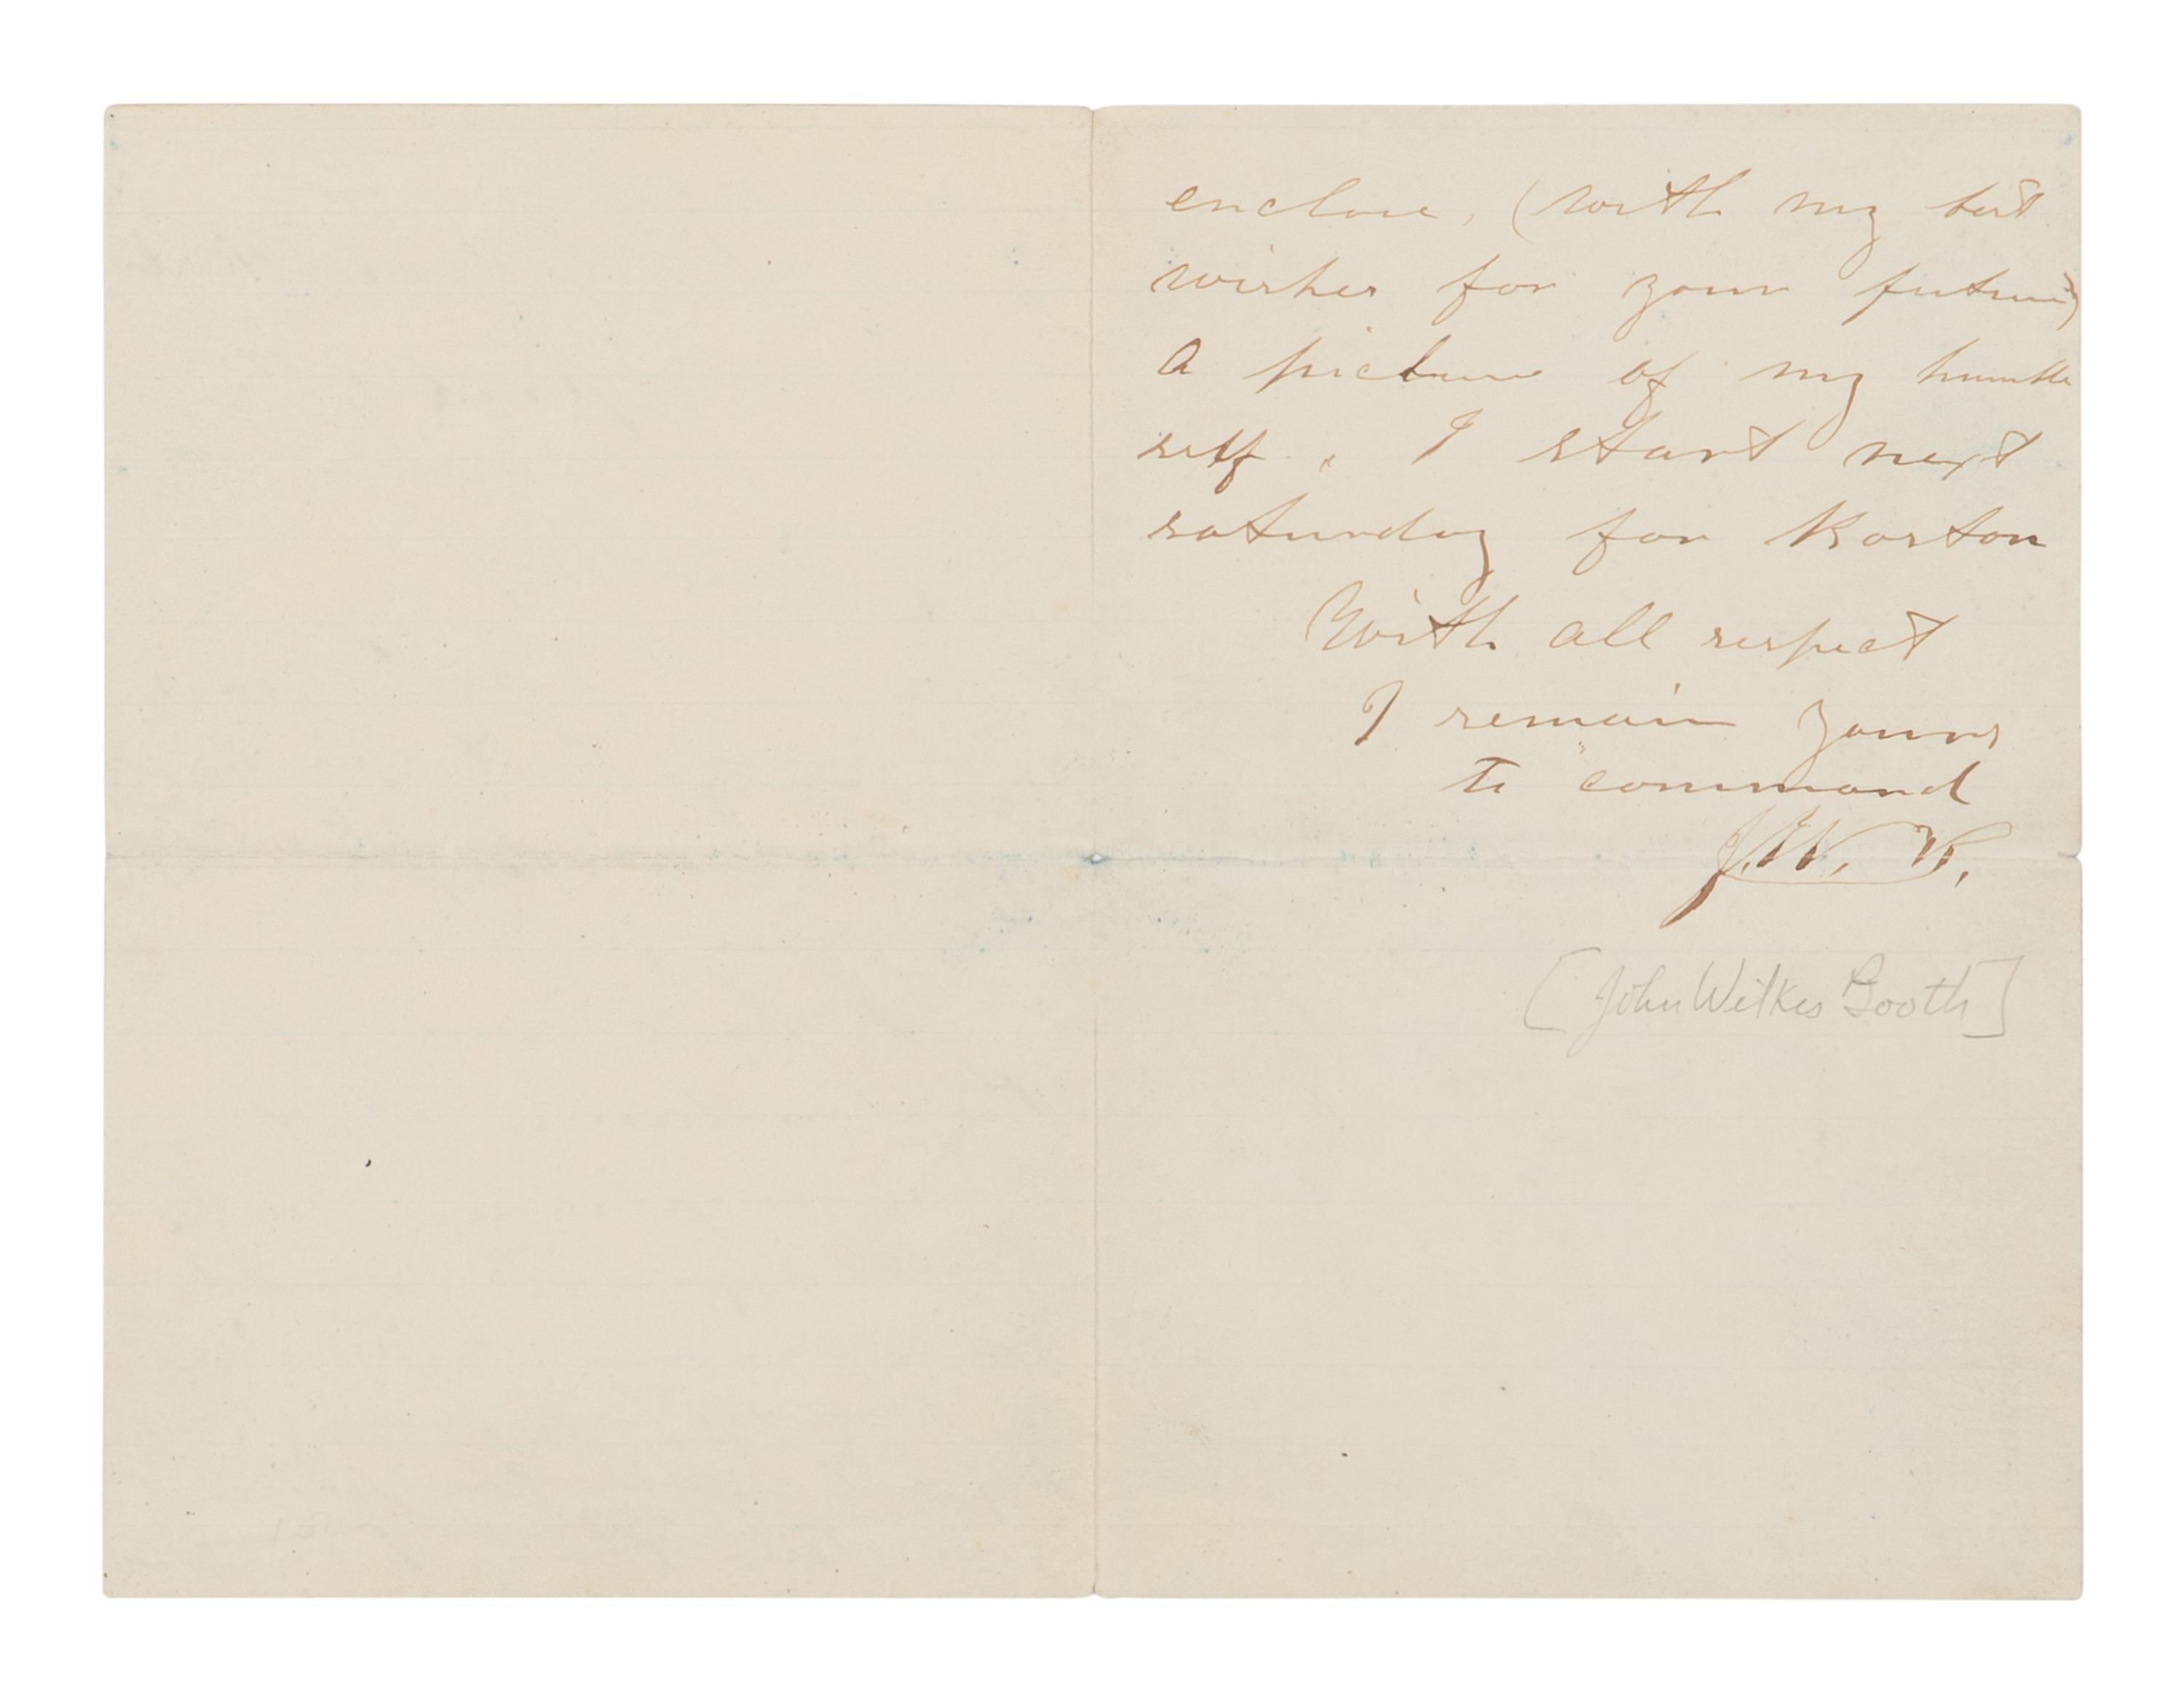 enclose, (with my best
wishes for your future)
a picture of my humble
self. I start next
saturday for Boston
With all respect
I remain yours
to command
J. W. B.
[John Wilkes Booth]